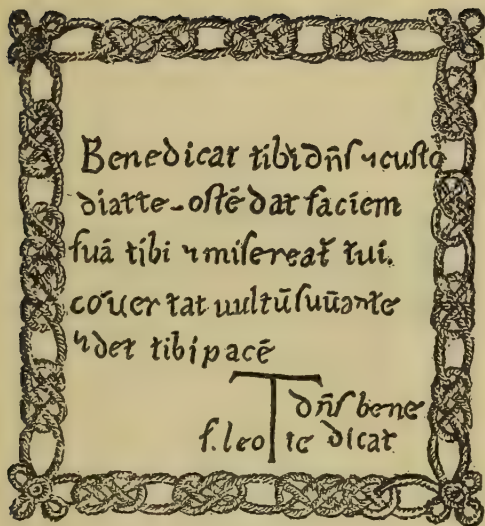 Benedicat tibi dñſ ⁊ cuſto
diat te - oſtēdat faciem
ſuā tibi ⁊ miſereat̄ tui.
cōuertat uultū ſuū ante
⁊ det tibi pacē
T dñſ bene
f. leo te dicat